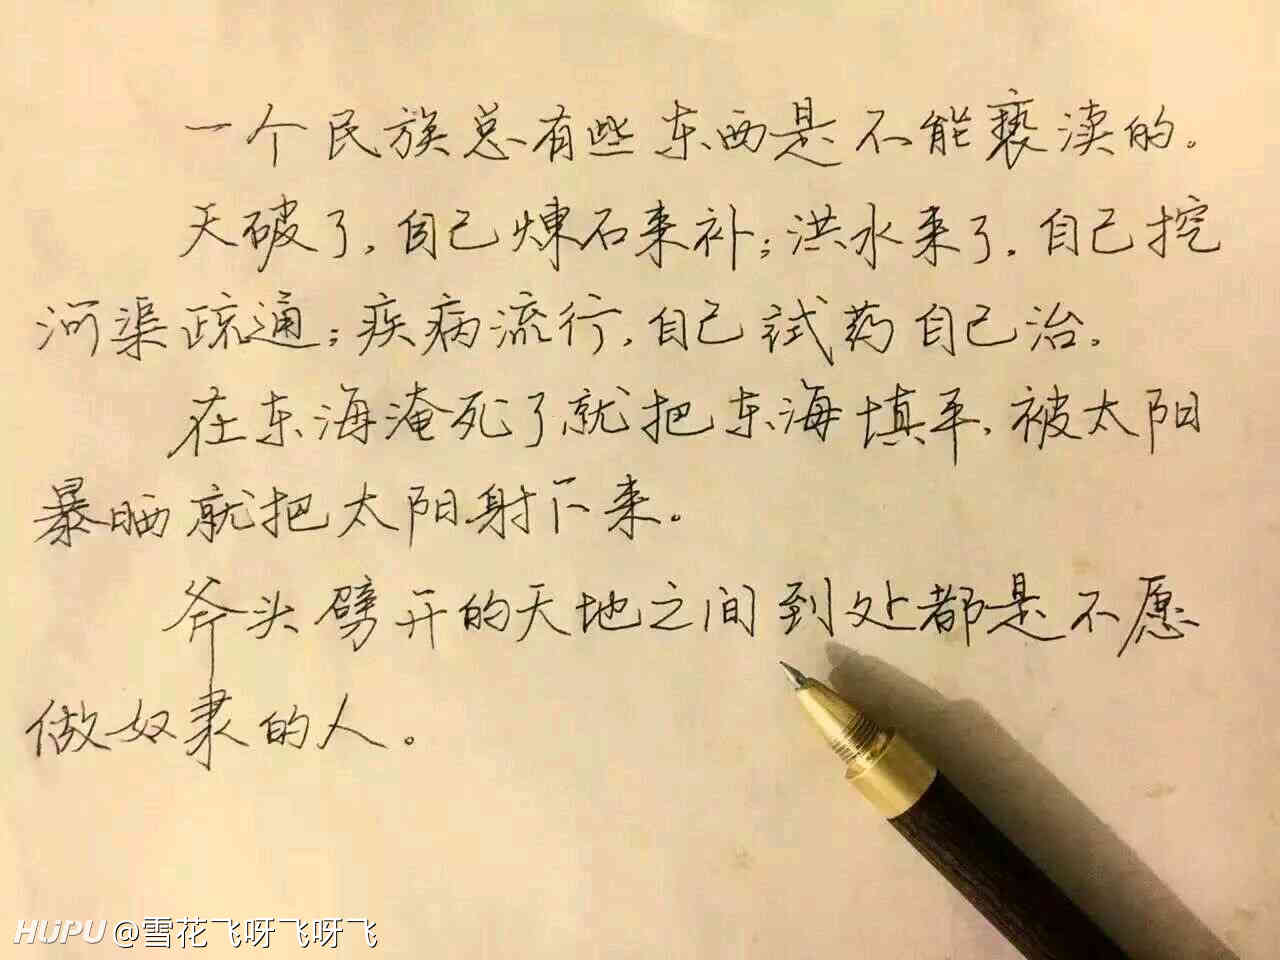 一个民族总有些东西是不能亵渎的。
天破了,自己煉石来补;洪水来了,自己挖
河渠疏通;疾病流行,自己试药自己治。
在东海淹死了就把东海填平,被太阳
暴晒就把太阳射下来。
斧头劈开的天地之间到处都是不愿
做奴隶的人。
HUPU @雪花飞呀飞呀飞